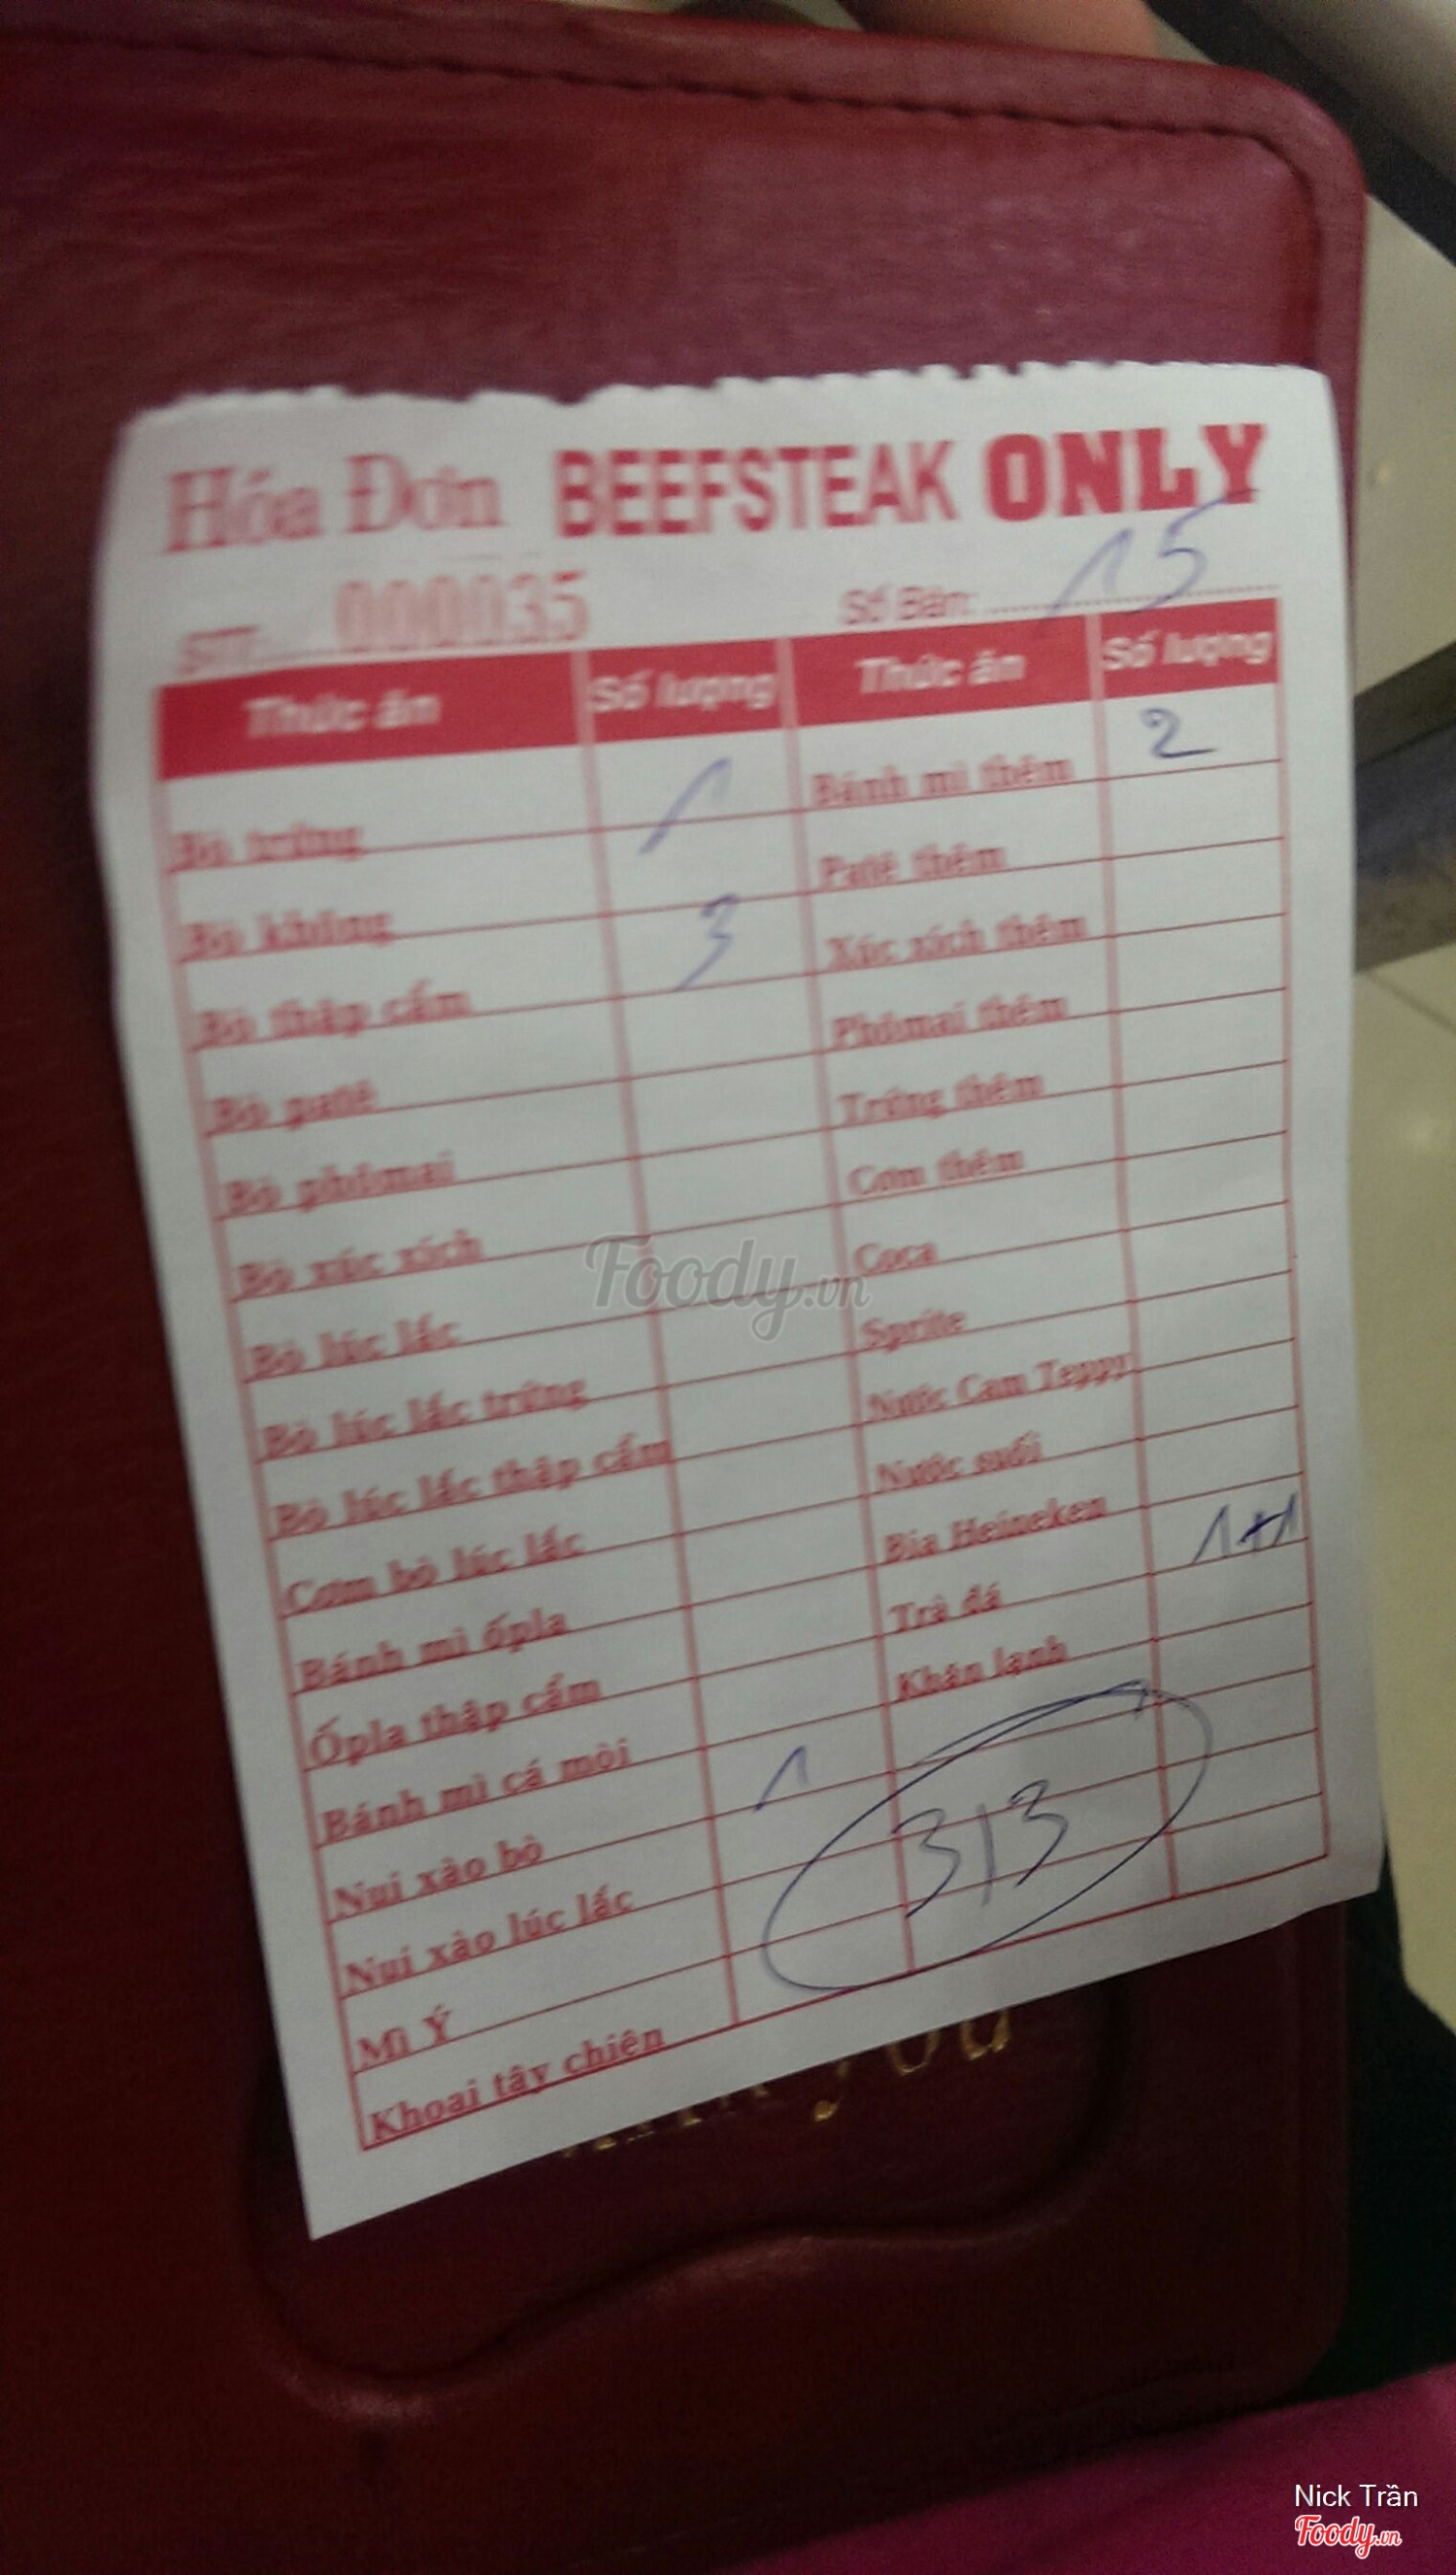 Hóa Đơn BEEFSTEAK ONLY
STT: 000035 Số Bàn: 15
Thức ăn Số lượng Thức ăn Số lượng
Bò trứng 1 Bánh mì thêm 2
Bò không Patê thêm
Bò thập cẩm 3 Xúc xích thêm
Bò patê Phômai thêm
Bò phômai Trứng thêm
Bò xúc xích Cơm thêm
Bò lúc lắc Coca
Bò lúc lắc trứng Sprite
Bò lúc lắc thập cẩm Nước Cam Teppy
Cơm bò lúc lắc Nước suối
Bánh mì ốpla Bia Heineken
Ốpla thập cẩm Trà đá 1+1
Bánh mì cá mòi Khăn lạnh
Nui xào bò 1
Nui xào lúc lắc 313
Mì Ý
Khoai tây chiên
you
Foody.vn
Nick Trần
Foody.vn